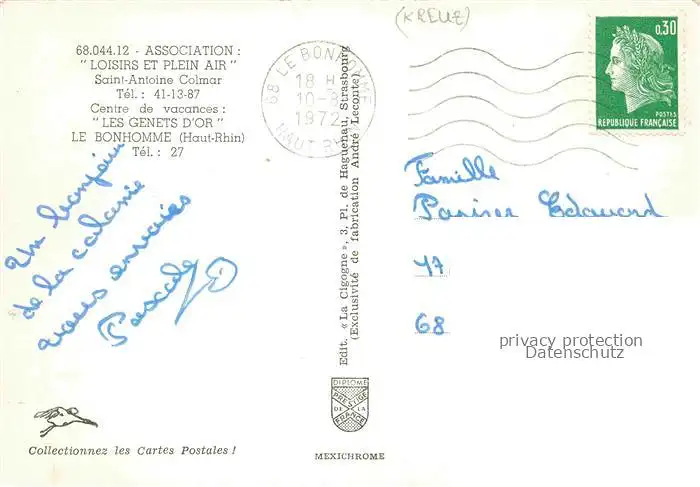 (KREUZ)
68.044.12 - ASSOCIATION :
" LOISIRS ET PLEIN AIR "
Saint-Antoine Colmar
Tél. : 41-13-87
Centre de vacances :
" LES GENETS D'OR "
LE BONHOMME (Haut-Rhin)
Tél. : 27
68 LE BONHOMME
18 H
10-8
1972
HAUT RHIN
0,30
POSTES
REPUBLIQUE FRANÇAISE
Un bonjour
de la colonie
vous envoies
Pascale
Edit. « La Cigogne », 3, Pl. de Haguenau, Strasbourg
(Exclusivité de fabrication André Leconte)
Famille
Edouard
47
68
privacy protection
Datenschutz
DIPLOME
PRESTIGE
DE LA
FRANCE
Collectionnez les Cartes Postales !
MEXICHROME